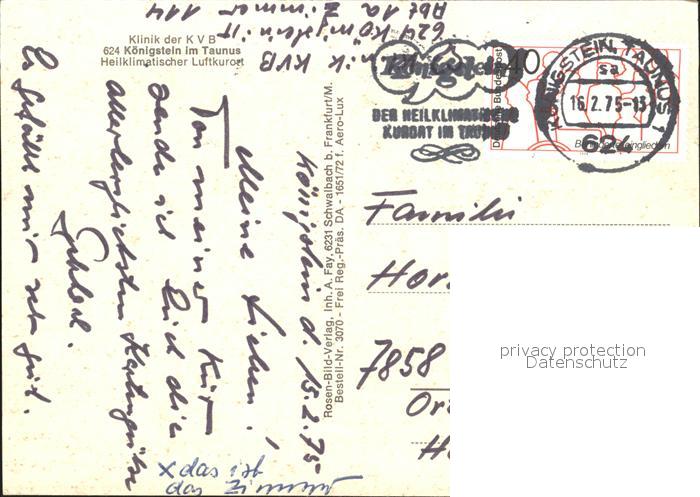 Klinik der K V B
624 Königstein im Taunus
Heilklimatischer Luftkurort
Klinik KVB
624 Königstein iT
Abt 1a Zimmer 114
Königstein d. 15.2.75
Meine Lieben!
Von meiner Kur
sende ich Euch die
allerherzlichsten Kartengrüße
Es gefällt mir sehr gut.
x das ist
das Zimmer
Rosen-Bild-Verlag, Inh. A. Fay, 6231 Schwalbach b. Frankfurt/M.
Bestell-Nr. 3070 - Frei Reg.-Präs. DA, - 1651/72 f. Aero-Lux
Königstein
DER HEILKLIMATISCHE
KURORT IM TAUNUS
40
Deutsche Bundespost
KÖNIGSTEIN, TAUNUS 1
sa
16.2.75-13
624
Familie
Hor
7858
privacy protection
Datenschutz